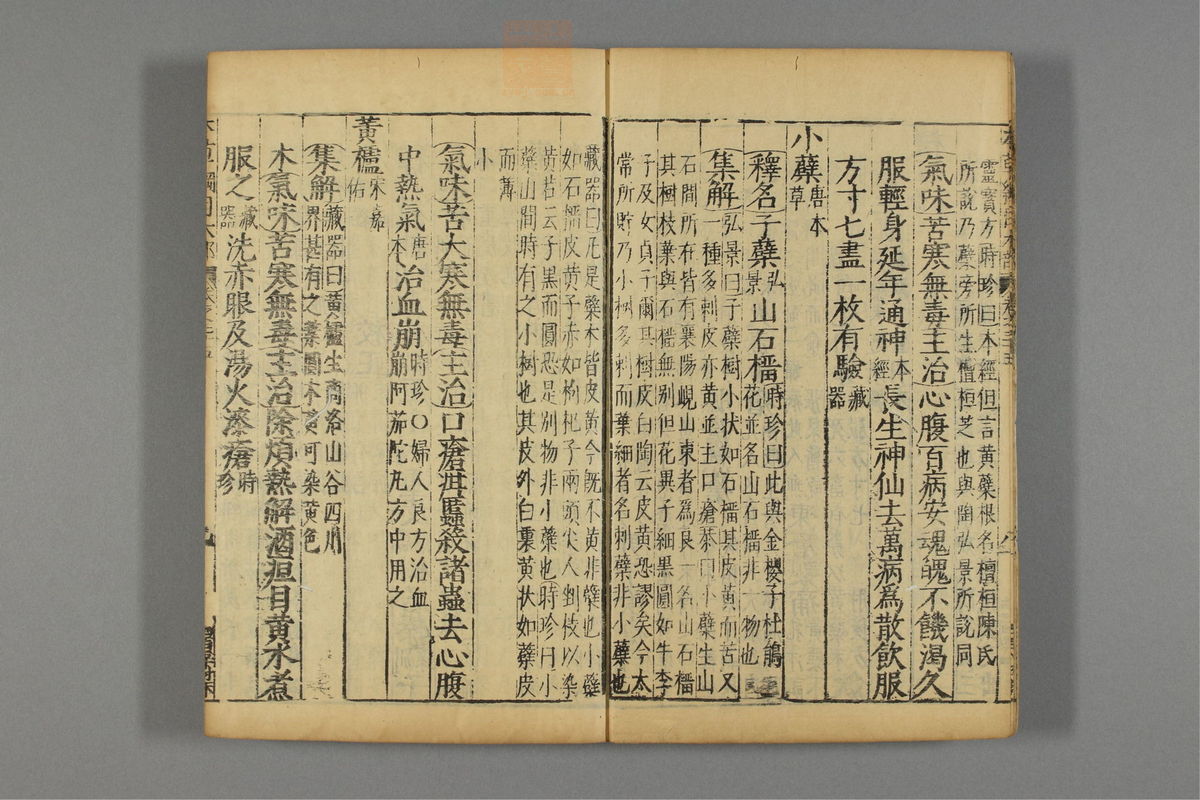 靈寶方時珍曰本經但言黃蘗根名檀桓陳氏
所說乃蘗旁所生檀桓芝也與陶弘景所說同
氣味苦寒無毒主治心腹百病安魂魄不饑渴久
服輕身延年通神本經長生神仙去萬病爲散飲服
方寸七盡一枚有驗藏器
小蘗唐本草
釋名子蘗弘景山石榴時珍曰此與金櫻子杜鵑
花並名山石榴非一物也
集解弘景曰子蘗樹小狀如石榴其皮黃而苦又
一種多刺皮亦黃並主口瘡恭曰小蘗生山
石間所在皆有襄陽峴山東者爲良一名山石榴
其樹枝葉與石榴無別但花異子細黑圓如牛李
子及女貞子爾其樹皮白陶云皮黃恐謬矣今太
常所貯乃小樹多刺而葉細者名刺蘗非小蘗也
藏器曰凡是蘗木皆皮黃今既不黃非蘗也小蘗
如石榴皮黃子赤如枸杞子兩頭尖人剉枝以染
黃若云子黑而圓恐是別物非小蘗也時珍曰小
蘗山間時有之小樹也其皮外白裏黃狀如蘗皮
而薄
小
氣味苦大寒無毒主治口瘡疳䘌殺諸蟲去心腹
中熱氣唐本治血崩時珍〇婦人良方治血
崩阿茄陀丸方中用之
黃櫨宋嘉祐
集解藏器曰黃櫨生商洛山谷四川
界甚有之葉圓木黃可染黃色
木氣味苦寒無毒主治除煩熱解酒疸目黃水煮
服之藏器洗赤眼及湯火漆瘡時珍